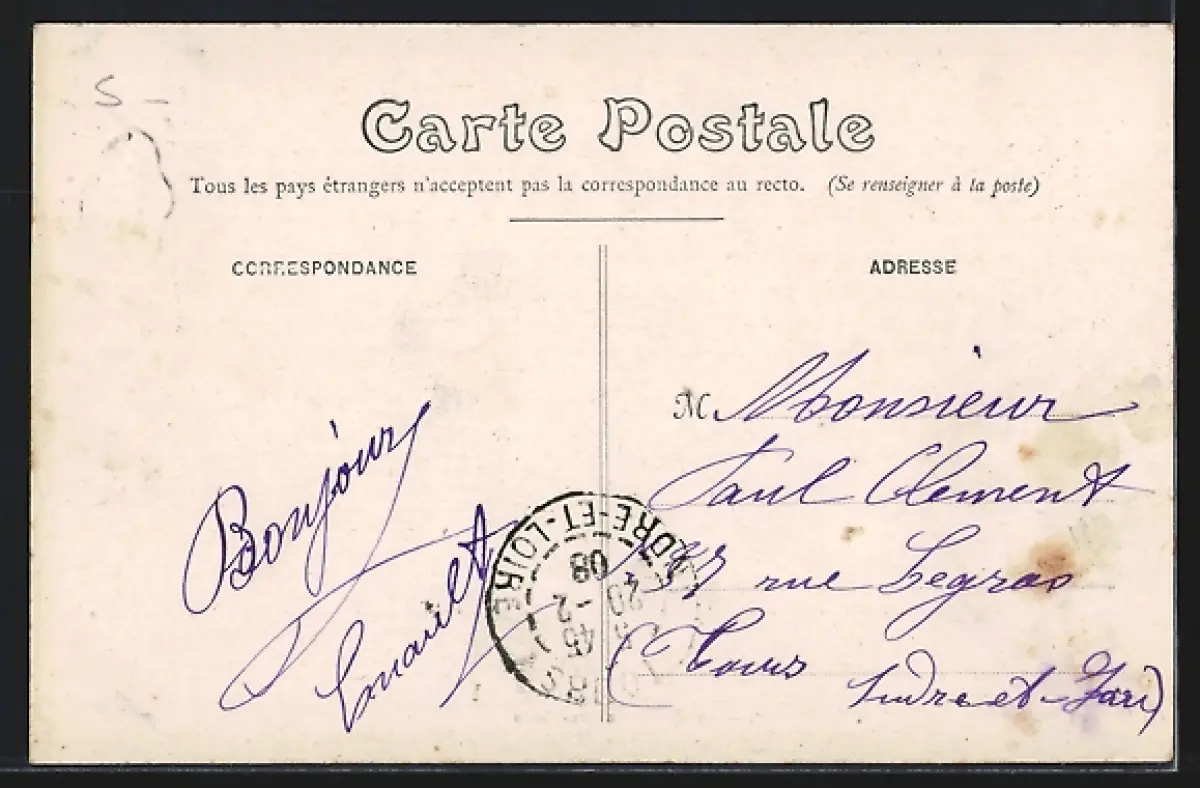 Carte Postale
Tous les pays étrangers n'acceptent pas la correspondance au recto. (Se renseigner à la poste)
CORRESPONDANCE
ADRESSE
Bonjour
M Monsieur
Paul Clement
rue Legras
(Tours
Indre et
INDRE-ET-LOIRE
45
20 -2
08